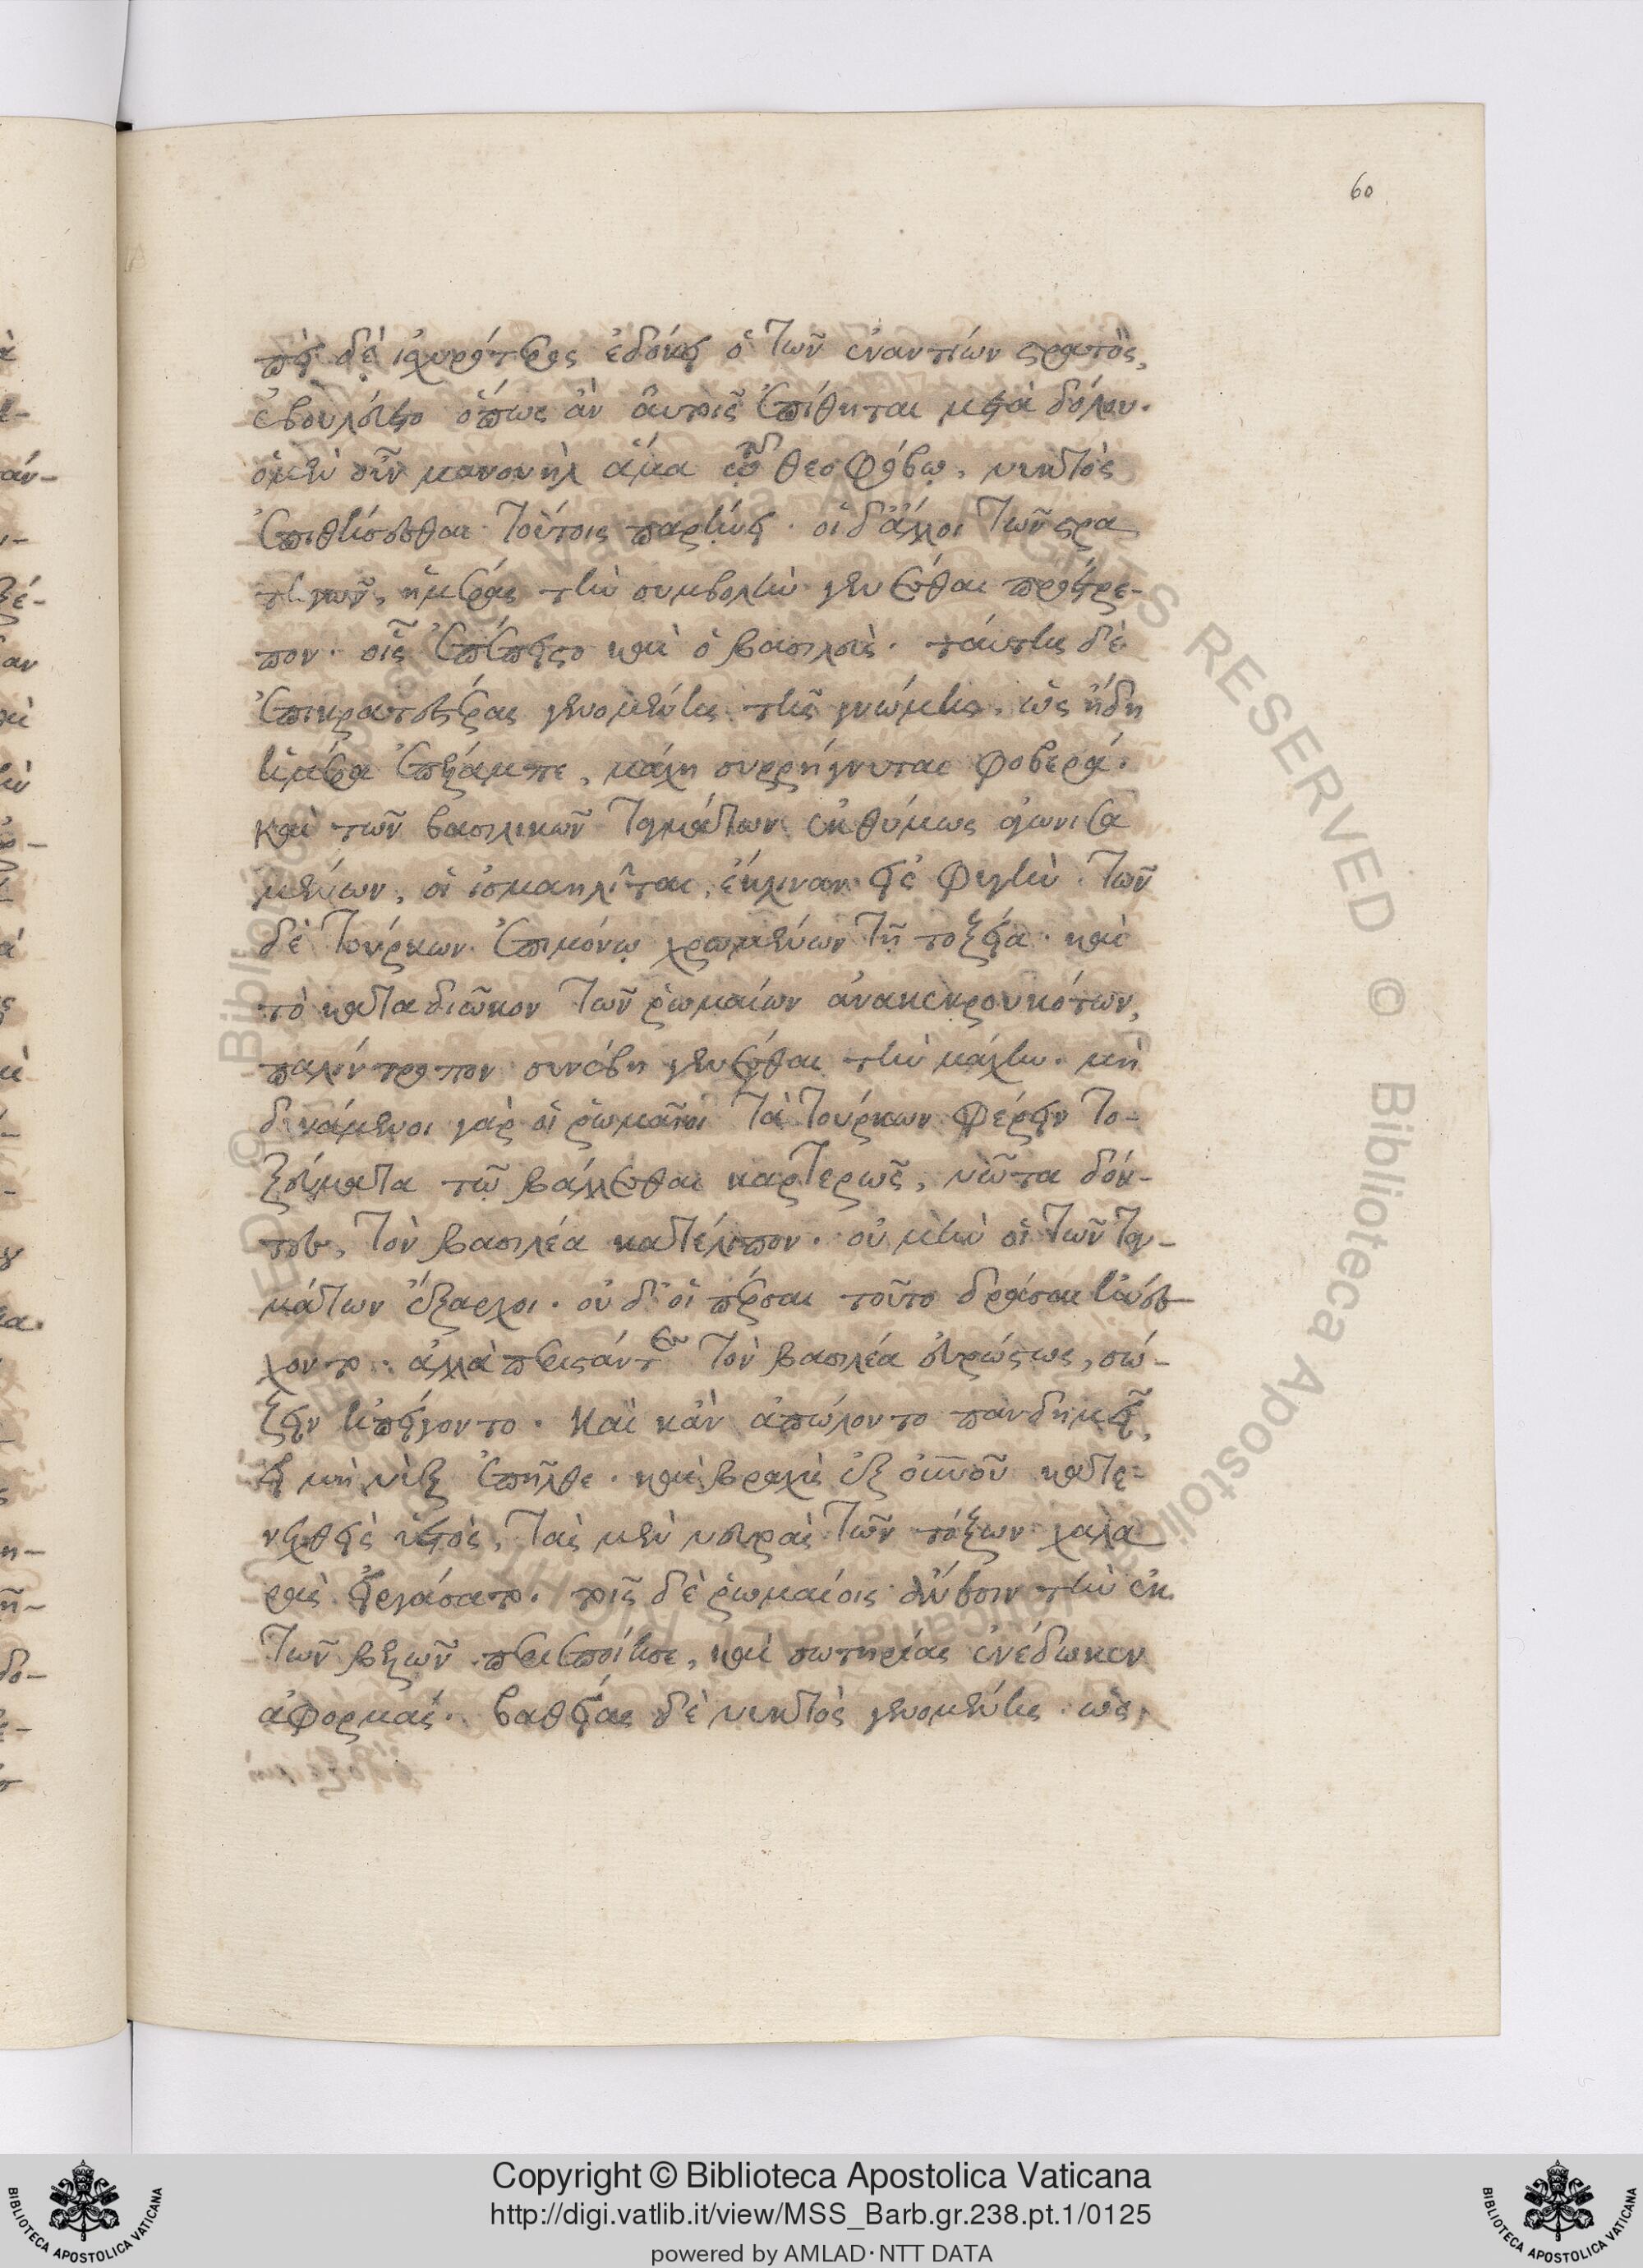 60
πεὶ δὲ ἰσχυρότερος ἐδόκει ὁ τῶν ἐναντίων στρατὸς,
ἐβουλεύετο ὅπως ἂν αὐτοῖς ἐπίθηται μετὰ δόλου.
ὁ μὲν οὖν μανουὴλ ἅμα τῷ θεοφόβῳ, νυκτὸς
ἐπιθήσεσθαι τούτοις παρῄνει. οἱ δ' ἄλλοι τῶν στρα
τηγῶν, ἡμέρας τὴν συμβολὴν γενέσθαι προέτρε-
πον. οἷς ἐπέπειστο καὶ ὁ βασιλεὺς. ταύτης δὲ
ἐπικρατεστέρας γενομένης τῆς γνώμης, ὡς ἤδη
ἡμέρα ἐπέλαμπε, μάχη συρρήγνυται φοβερά.
καὶ τῶν βασιλικῶν ταγμάτων ἐκθύμως ἀγωνισα
μένων, οἱ ἰσμαηλῖται, ἔκλιναν εἰς φυγὴν. τῶν
δὲ τούρκων ἐπιμόνῳ χρωμένων τῇ τοξείᾳ. καὶ
τὸ καταδιῶκον τῶν ῥωμαίων ἀνακεκρουκότων,
παλίντροπον συνέβη γενέσθαι τὴν μάχην. μὴ
δυνάμενοι γὰρ οἱ ῥωμαῖοι τὰ τούρκων φέρειν το-
ξεύματα τῷ βάλλεσθαι καρτερῶς, νῶτα δόν-
τες, τὸν βασιλέα κατέλιπον. οὐ μὴν οἱ τῶν ταγ-
μάτων ἔξαρχοι. οὐδ' οἱ πέρσαι τοῦτο δρᾶσαι ἠνέσ
χοντο. ἀλλὰ περιστάντες τὸν βασιλέα εὐρώστως, σώ-
ζειν ἠπείγοντο. Καὶ κἂν ἀπώλοντο πανδημεὶ,
εἰ μὴ νὺξ ἐπῆλθε. καὶ βραχὺς ἐξ οὐρανοῦ κατε-
νεχθεὶς ὑετὸς, τὰς μὲν νευρὰς τῶν τόξων χαλα
ρὰς εἰργάσατο. τοῖς δὲ ῥωμαίοις ἄνεσιν τὴν ἐκ
τῶν βελῶν περιεποίησε, καὶ σωτηρίας ἐνέδωκεν
ἀφορμάς. βαθείας δὲ νυκτὸς γενομένης ὡς
Copyright © Biblioteca Apostolica Vaticana
http://digi.vatlib.it/view/MSS_Barb.gr.238.pt.1/0125
powered by AMLAD·NTT DATA
BIBLIOTECA APOSTOLICA VATICANA
BIBLIOTECA APOSTOLICA VATICANA